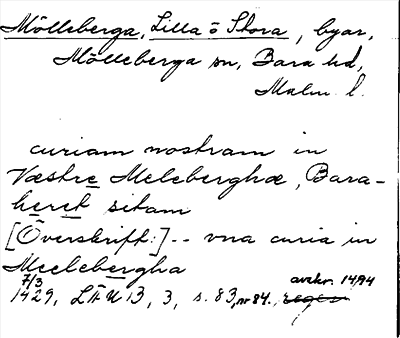 Mölleberga, Lilla o Stora, byar,
Mölleberga sn, Bara hd,
Malm. l.
curiam nostram in
Væstre Meleberghæ, Bara-
heret sitam
[Överskrift:] -- vna curia in
Meelebergha
7/3 avskr. 1494
1429, LÄU 13, 3, s. 83, nr 84.